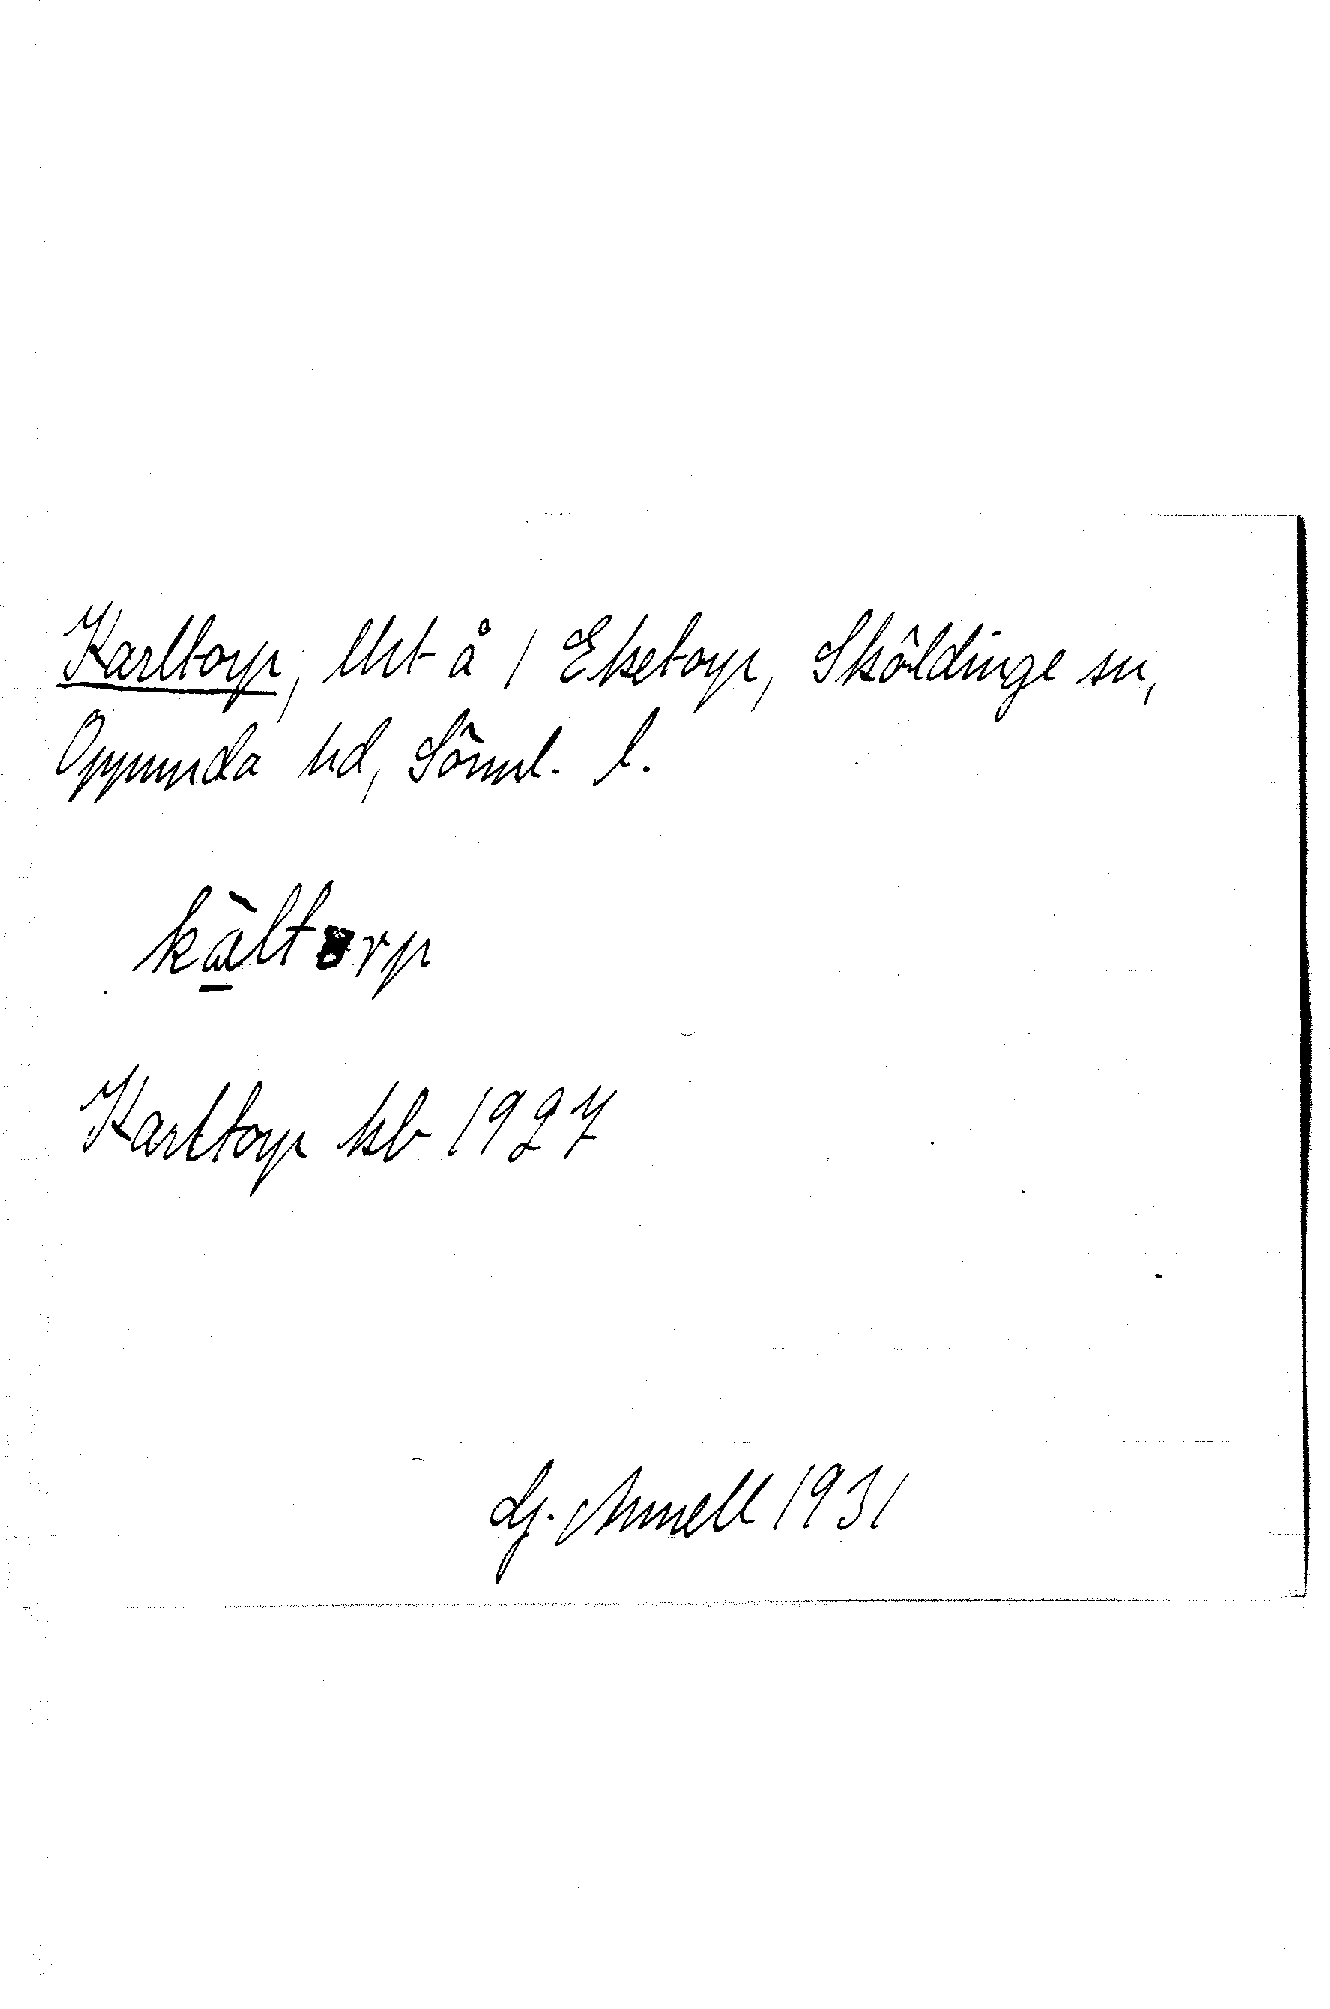 Karltorp, lht å 1 Eketorp, Sköldinge sn,
Oppunda hd, Söml. l.
kàltorp
Karltorp kb 1927
G. Annell 1931